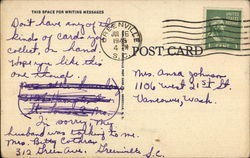 THIS SPACE FOR WRITING MESSAGES
Don't have any of the
kinds of cards you
collect, on hand
Hope you like this
one though.
I'm sorry, my
husband was talking to me.
Mrs. Betty
312 Green Ave. Greenville S.C.
GREENVILLE
S.C.
POST CARD
Mrs. Anna Johnson
1106 West 21st St.
Vancouver, Wash.